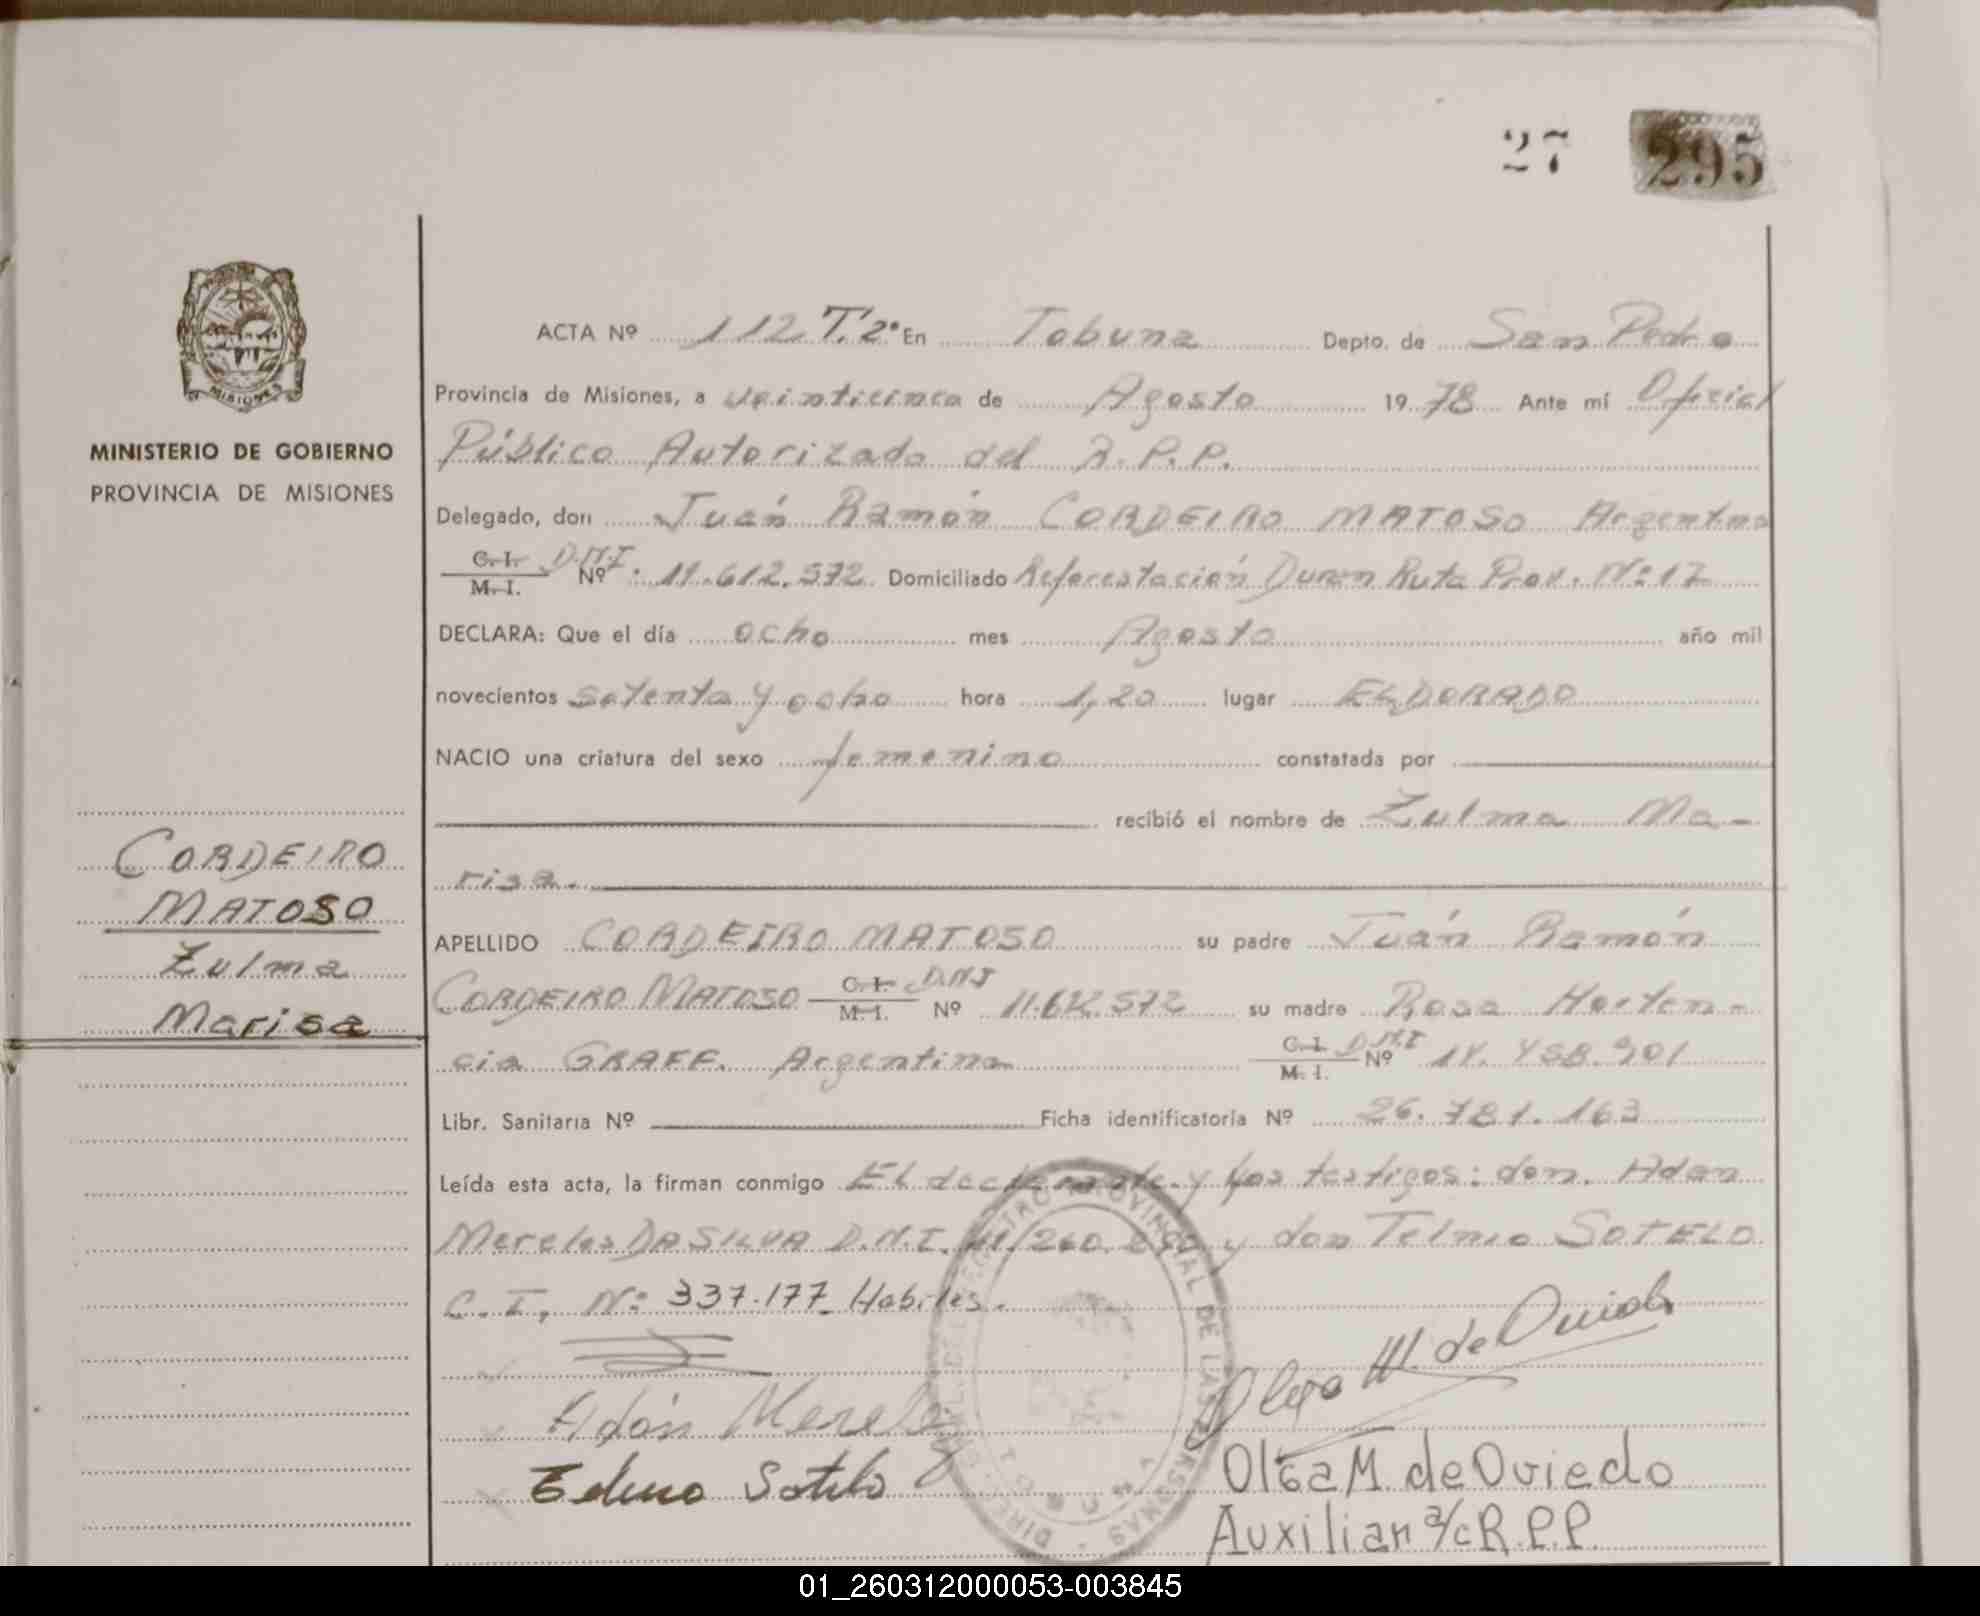 27 295
ACTA Nº 112 T.2º En Tobuna Depto. de San Pedro
Provincia de Misiones, a veinticinco de Agosto 1978 Ante mí Oficial
Público Autorizado del R.P.P.
Delegado, don Juán Ramón CORDEIRO MATOSO Argentino
C.I. M.I. D.N.I. Nº 11.612.572 Domiciliado Reforestación Duran Ruta Prov. Nº 17
DECLARA: Que el día ocho mes Agosto año mil
novecientos setenta y ocho hora 1,20 lugar ELDORADO
NACIO una criatura del sexo femenino constatada por
recibió el nombre de Zulma Ma-
risa.
APELLIDO CORDEIRO MATOSO su padre Juán Ramón
CORDEIRO MATOSO C.I. M.I. D.N.I Nº 11.612.572 su madre Rosa Horten-
cia GRAFF. Argentina C.I. M.I. D.N.I Nº 14.458.901
Libr. Sanitaria Nº Ficha identificatoria Nº 26.781.163
Leída esta acta, la firman conmigo El declarante y los testigos: don. Adan
Mereles DA SILVA D.N.I. y don Telmo SOTELO
C.I. Nº 337.177 Habiles.
MINISTERIO DE GOBIERNO
PROVINCIA DE MISIONES
MISIONES
CORDEIRO
MATOSO
Zulma
Marisa
Adón Merele
Telmo Sotelo
Olga M. de Oviedo
Olga M. de Oviedo
Auxiliar a/c R.P.P.
REGISTRO PROVINCIAL DE LAS PERSONAS
01_260312000053-003845